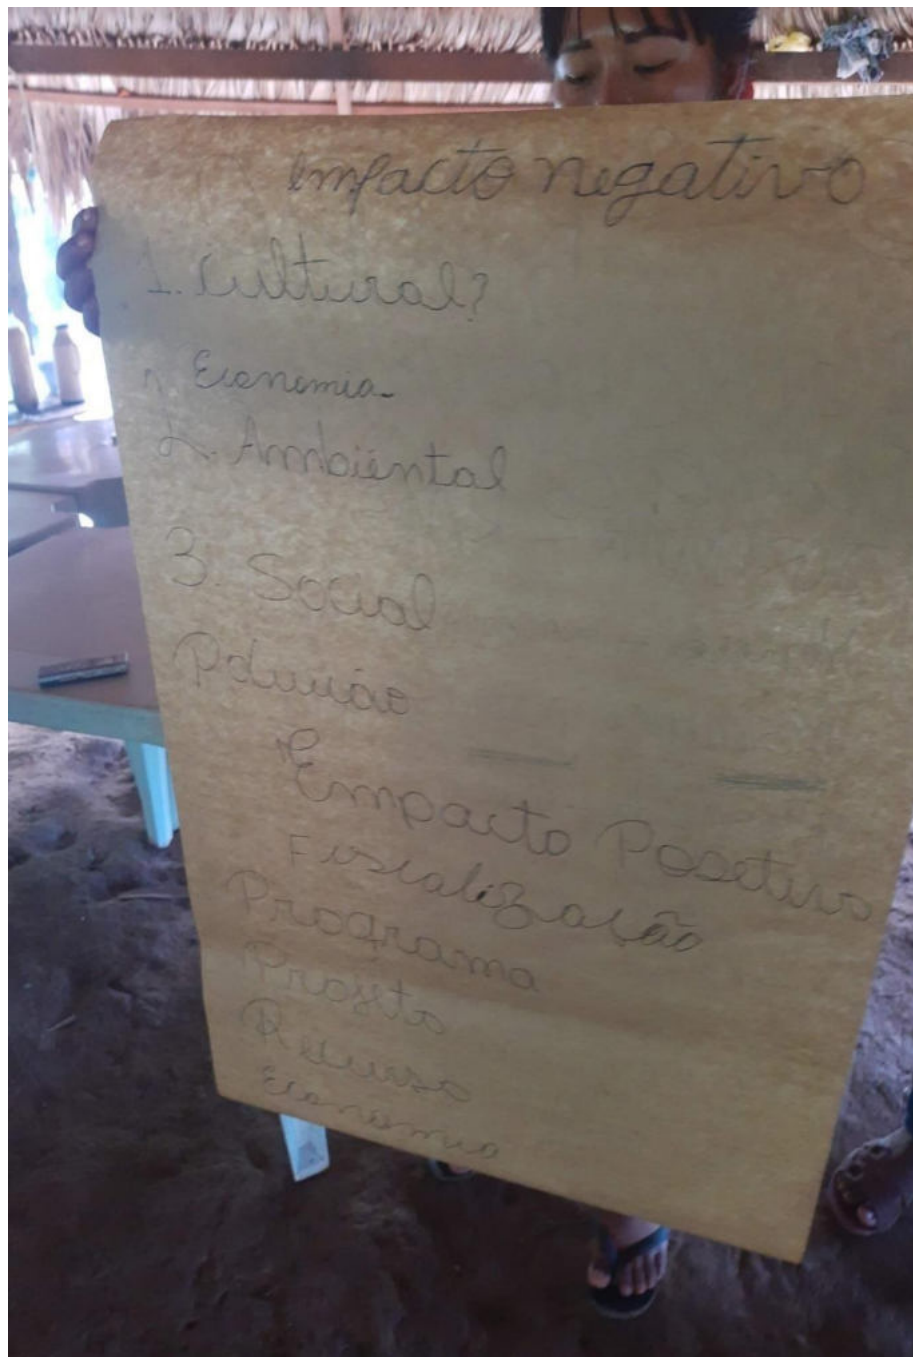 impacto negativo
1. Cultural?
Economia
2. Ambiental
3. Social
Poluição
Empacto Posetivo
Fiscalização
Programa
Projeto
Recurso
Economia